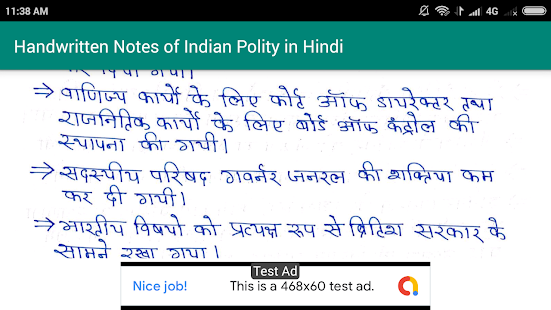 11:38 AM 4G
Handwritten Notes of Indian Polity in Hindi
गयी।
⇒ वाणिज्य कार्यो के लिए कोर्ट ऑफ डायरेक्टर तथा
राजनितिक कार्यो के लिए बोर्ड ऑफ कंट्रोल की
स्थापना की गयी।
⇒ सदस्यीय परिषद गवर्नर जनरल की शक्तिया कम
कर दी गयी।
⇒ भारतीय विषयो को प्रत्यक्ष रूप से ब्रिटिश सरकार के
सामने रखा गया।
Test Ad
Nice job! This is a 468x60 test ad.